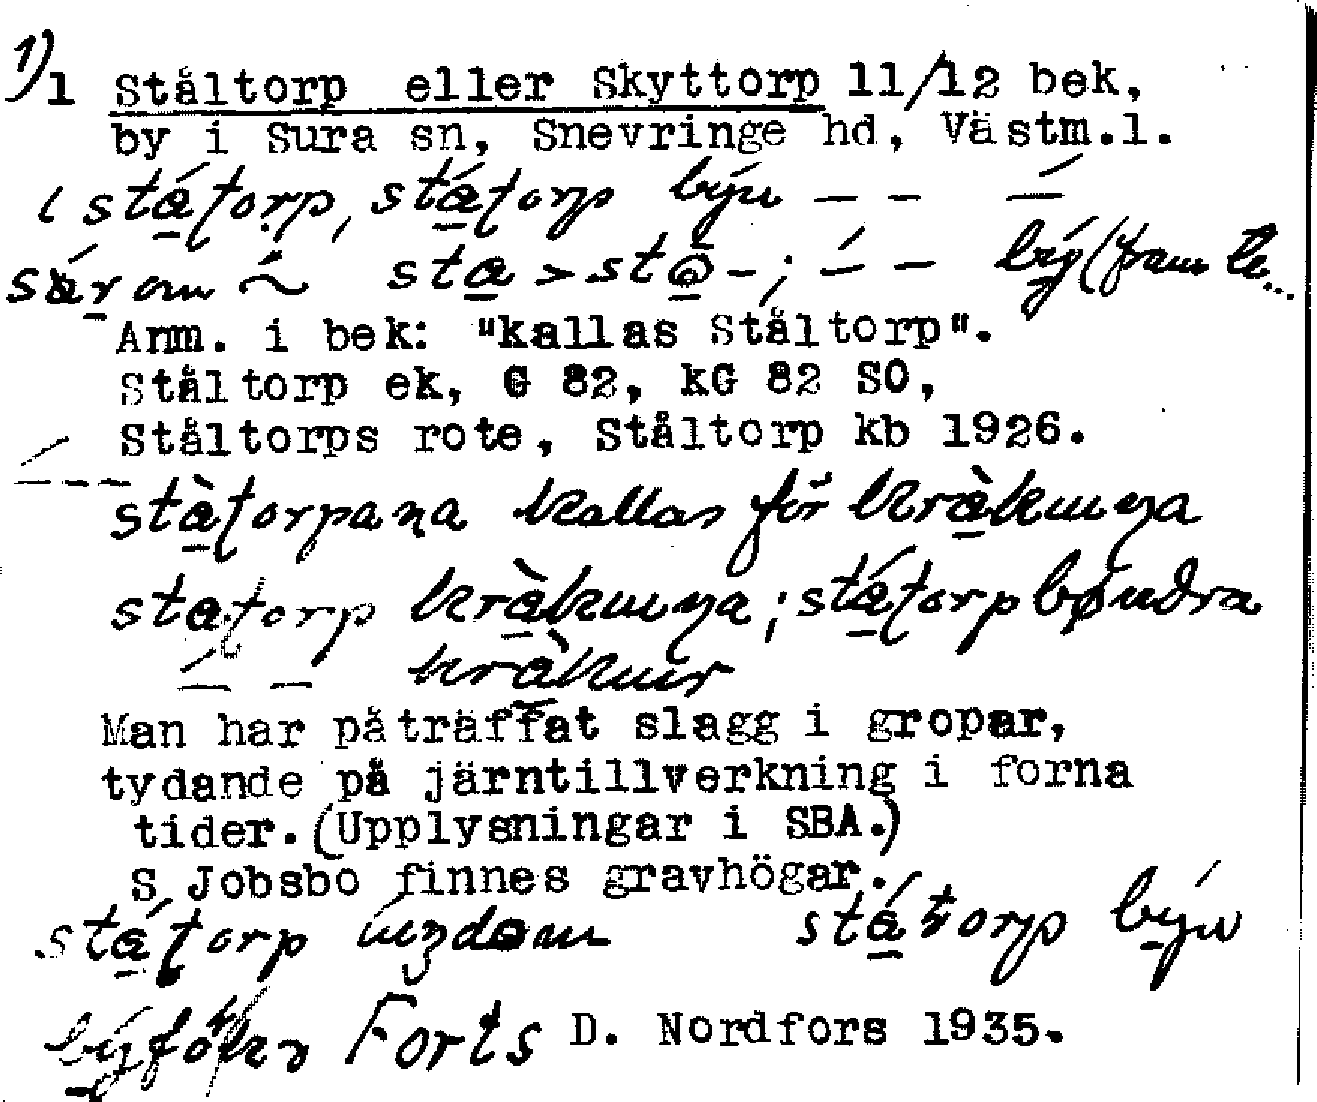 1)1 Ståltorp eller Skyttorp 11/12 bek,
by i Sura sn, Snevringe hd, Västm.l.
i státorp, státorp býn – – –
sár om ~ sta > stə̄ – ; – – bý (fram te...
Anm. i bek: "kallas Ståltorp".
Ståltorp ek, G 82, kG 82 SO,
Ståltorps rote, Ståltorp kb 1926.
– – – stàtorpana kallas för kràkunga
statorp kràkunga ; státorpbøndra
– – kràkur
Man har påträffat slagg i gropar,
tydande på järntillverkning i forna
tider. (Upplysningar i SBA.)
S Jobsbo finnes gravhögar.
státorp úngdom státorp býn
Forts D. Nordfors 1935.